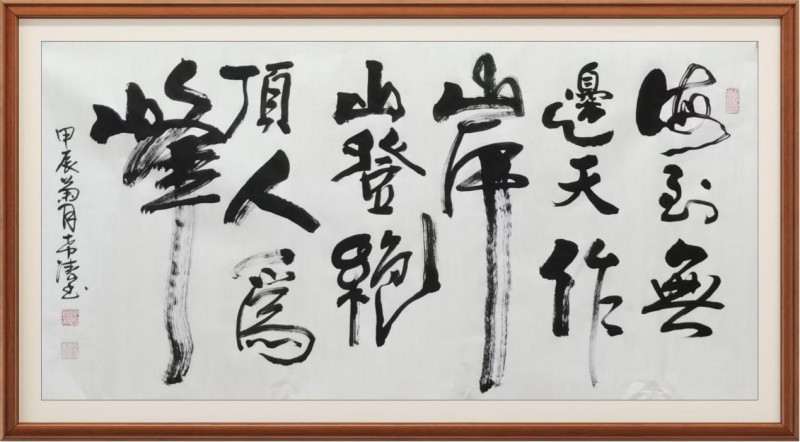 海到無
邊天作
岸
山登絕
頂人爲
峰
甲辰菊月末清书